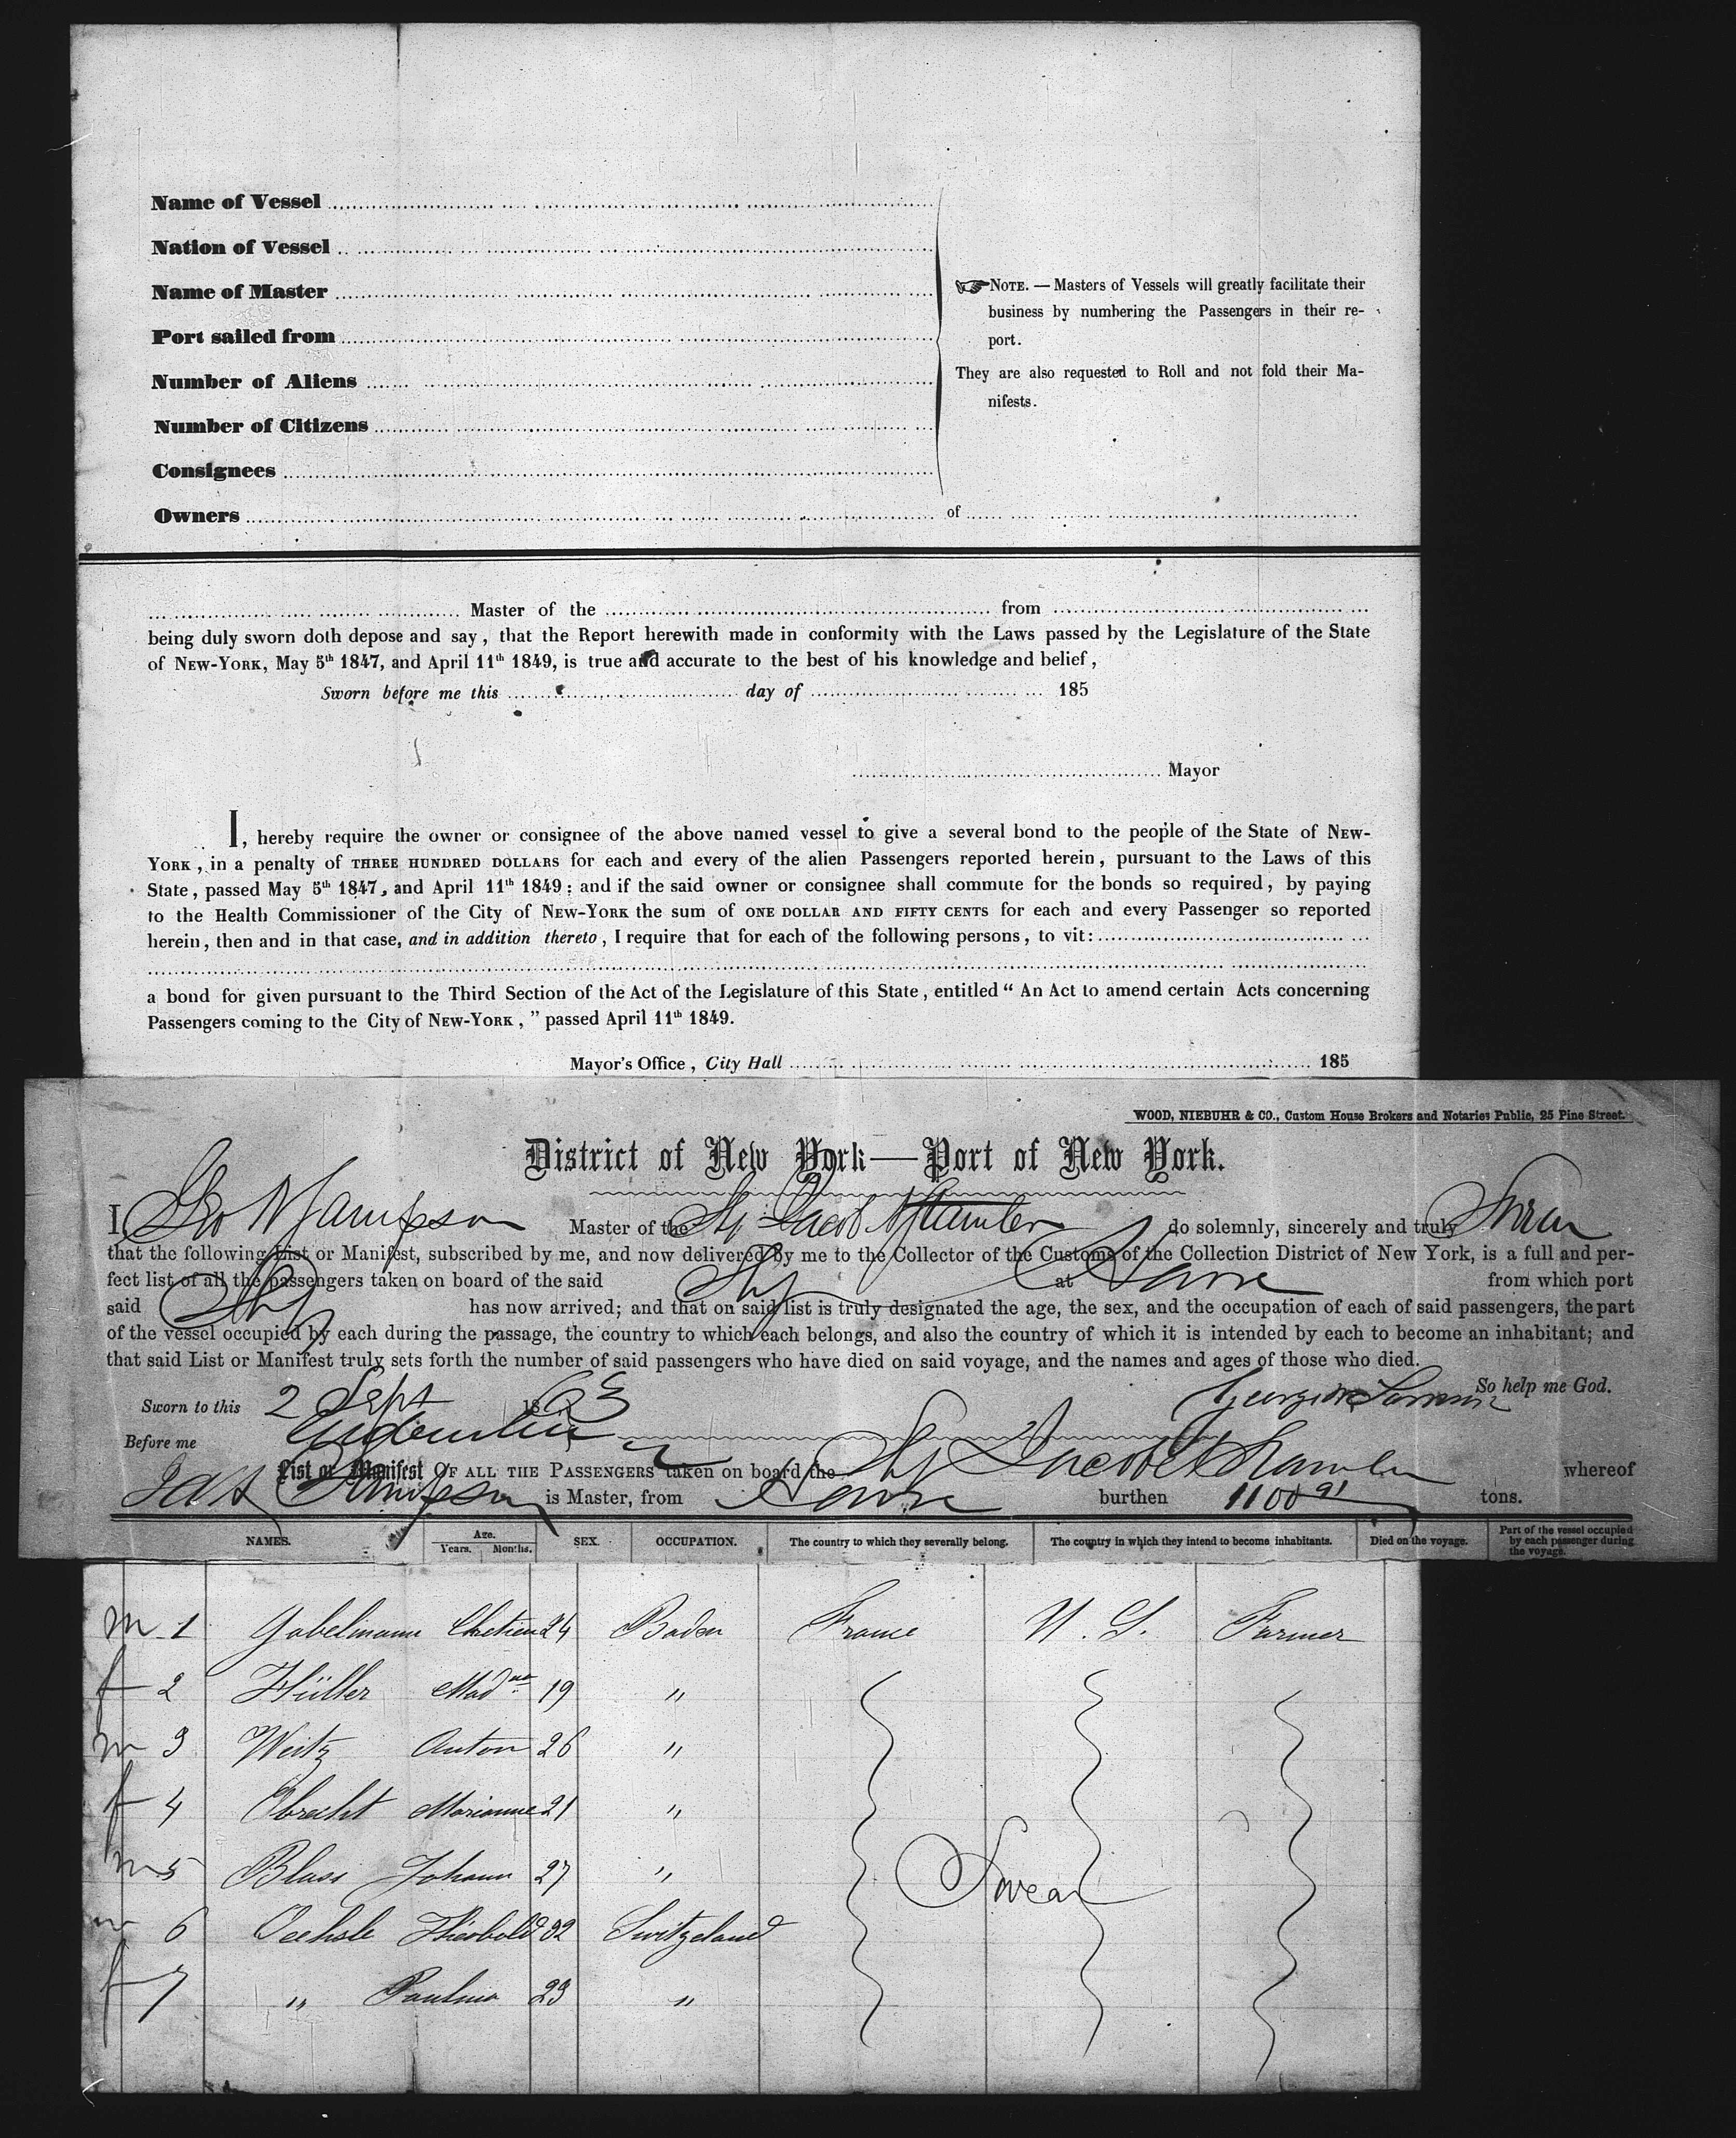 Name of Vessel
Nation of Vessel
Name of Master
Port sailed from
Number of Aliens
Number of Citizens
Consignees
Owners of
NOTE. — Masters of Vessels will greatly facilitate their
business by numbering the Passengers in their re-
port.
They are also requested to Roll and not fold their Ma-
nifests.
Master of the from
being duly sworn doth depose and say, that the Report herewith made in conformity with the Laws passed by the Legislature of the State
of NEW-YORK, May 5th 1847, and April 11th 1849, is true and accurate to the best of his knowledge and belief,
Sworn before me this day of 185
Mayor
I, hereby require the owner or consignee of the above named vessel to give a several bond to the people of the State of NEW-
YORK, in a penalty of THREE HUNDRED DOLLARS for each and every of the alien Passengers reported herein, pursuant to the Laws of this
State, passed May 5th 1847, and April 11th 1849: and if the said owner or consignee shall commute for the bonds so required, by paying
to the Health Commissioner of the City of NEW-YORK the sum of ONE DOLLAR AND FIFTY CENTS for each and every Passenger so reported
herein, then and in that case, and in addition thereto, I require that for each of the following persons, to vit:
a bond for given pursuant to the Third Section of the Act of the Legislature of this State, entitled “ An Act to amend certain Acts concerning
Passengers coming to the City of NEW-YORK, ” passed April 11th 1849.
Mayor's Office, City Hall 185
WOOD, NIEBUHR & CO., Custom House Brokers and Notaries Public, 25 Pine Street.
District of New York—Port of New York.
I, Geo W Sampson Master of the Shp Jacob A Stamler do solemnly, sincerely and truly Swear
that the following List or Manifest, subscribed by me, and now delivered by me to the Collector of the Customs of the Collection District of New York, is a full and per-
fect list of all the passengers taken on board of the said Shp at Havre from which port
said Shp has now arrived; and that on said list is truly designated the age, the sex, and the occupation of each of said passengers, the part
of the vessel occupied by each during the passage, the country to which each belongs, and also the country of which it is intended by each to become an inhabitant; and
that said List or Manifest truly sets forth the number of said passengers who have died on said voyage, and the names and ages of those who died.
So help me God.
Sworn to this 2 Sept 1863
Before me
List or Manifest OF ALL THE PASSENGERS taken on board the Shp Jacob A Stamler whereof
Sampson is Master, from Havre burthen 1100 91 tons.
NAMES. Age. Years. Months. SEX. OCCUPATION. The country to which they severally belong. The country in which they intend to become inhabitants. Died on the voyage. Part of the vessel occupied by each passenger during the voyage.
m 1 Gabelmann Chretien 24 Baden France U. S. Farmer
f 2 Hüller 19 "
m 3 Weitz Anton 26 "
f 4 Obrecht Marianne 21 "
m 5 Blass Johann 27 "
Swear
m 6 Oechsle Théobold 32 Switzeland
f 7 " Paulina 23 "